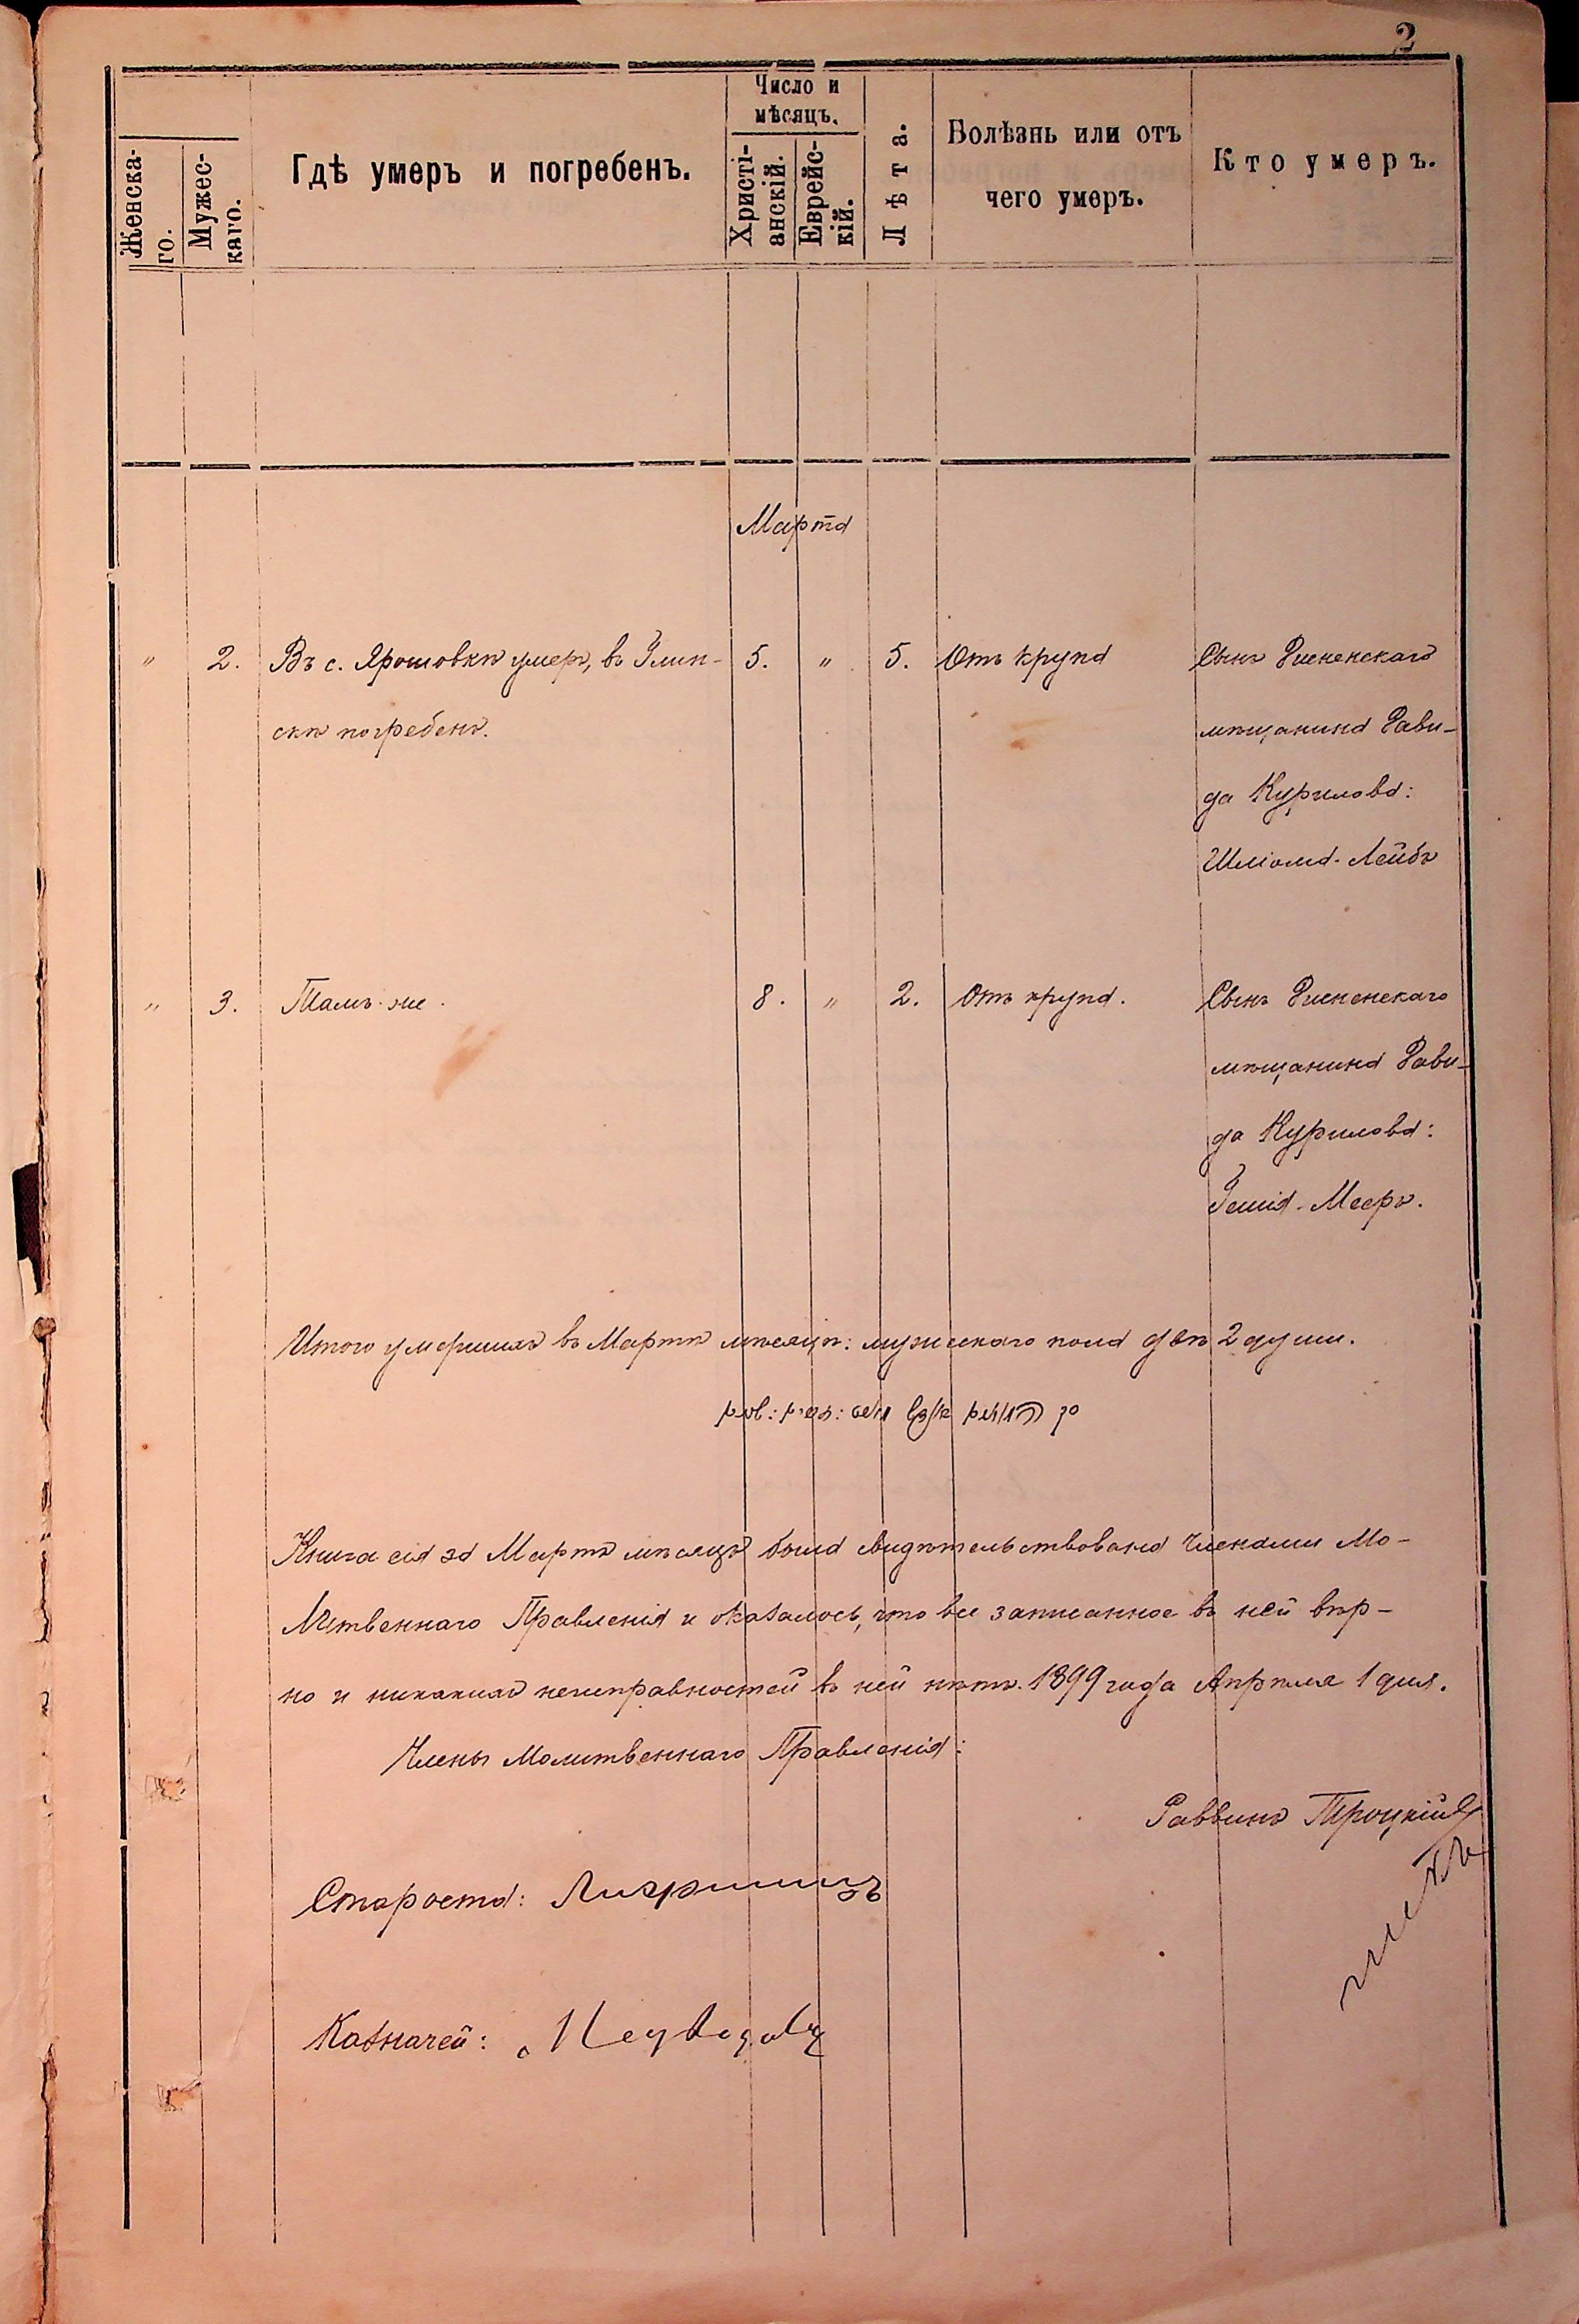 2
Число и
мѣсяцъ.
Женска-
го.
Мужес-
каго.
Гдѣ умеръ и погребенъ.
Христі-
анскій.
Еврейс-
кій.
Лѣта.
Болѣзнь или отъ
чего умеръ.
Кто умеръ.
Марта
" 2. Въ с. Ярошовкѣ умеръ, въ Глин- 5. " 5. Отъ крупа Сынъ
скѣ погребенъ. мѣщанина Дави-
да Курилова:
Шліома-Лейбъ
" 3. Тамъ-же. 8. " 2. Отъ крупа. Сынъ
мѣщанина Дави-
да Курилова:
Мееръ.
Итого умершихъ въ Мартѣ мѣсяцѣ: мужескаго пола двѣ 2 души.
Книга сія за Мартъ мѣсяцъ была свидѣтельствована Членами Мо-
литвеннаго Правленія и оказалось, что все записанное въ ней вѣр-
но и никакихъ неисправностей въ ней нѣтъ. 1899 года Апрѣля 1 дня.
Члены Молитвеннаго Правленія:
Раввинъ Троцкій
Староста:
Казначей: